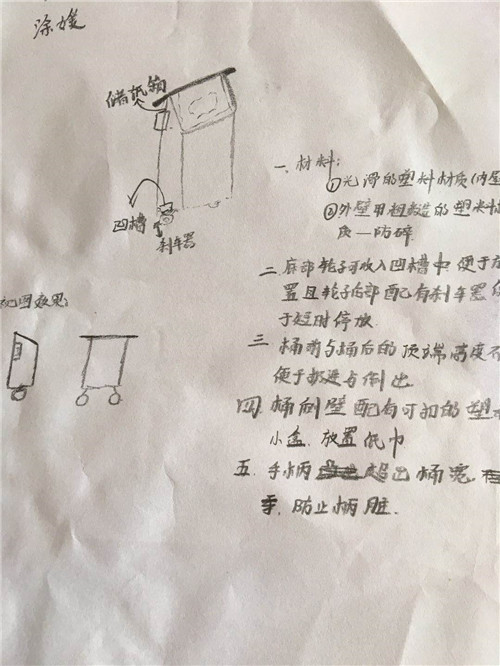 涂媛
储纸箱
凹槽
刹车器
一、材料:
①光滑的塑料材质(内
②外壁用粗糙的塑料
质—防碎
二、底部轮子可收入凹槽中便于放
置且轮子后部配有刹车器
于短时停放.
效果:
三 桶前与桶后的顶端高度不
便于扔进与倒出
四、桶侧壁配有可扣的塑
小盒.放置纸巾
五、手柄 超出桶宽
防止柄脏.